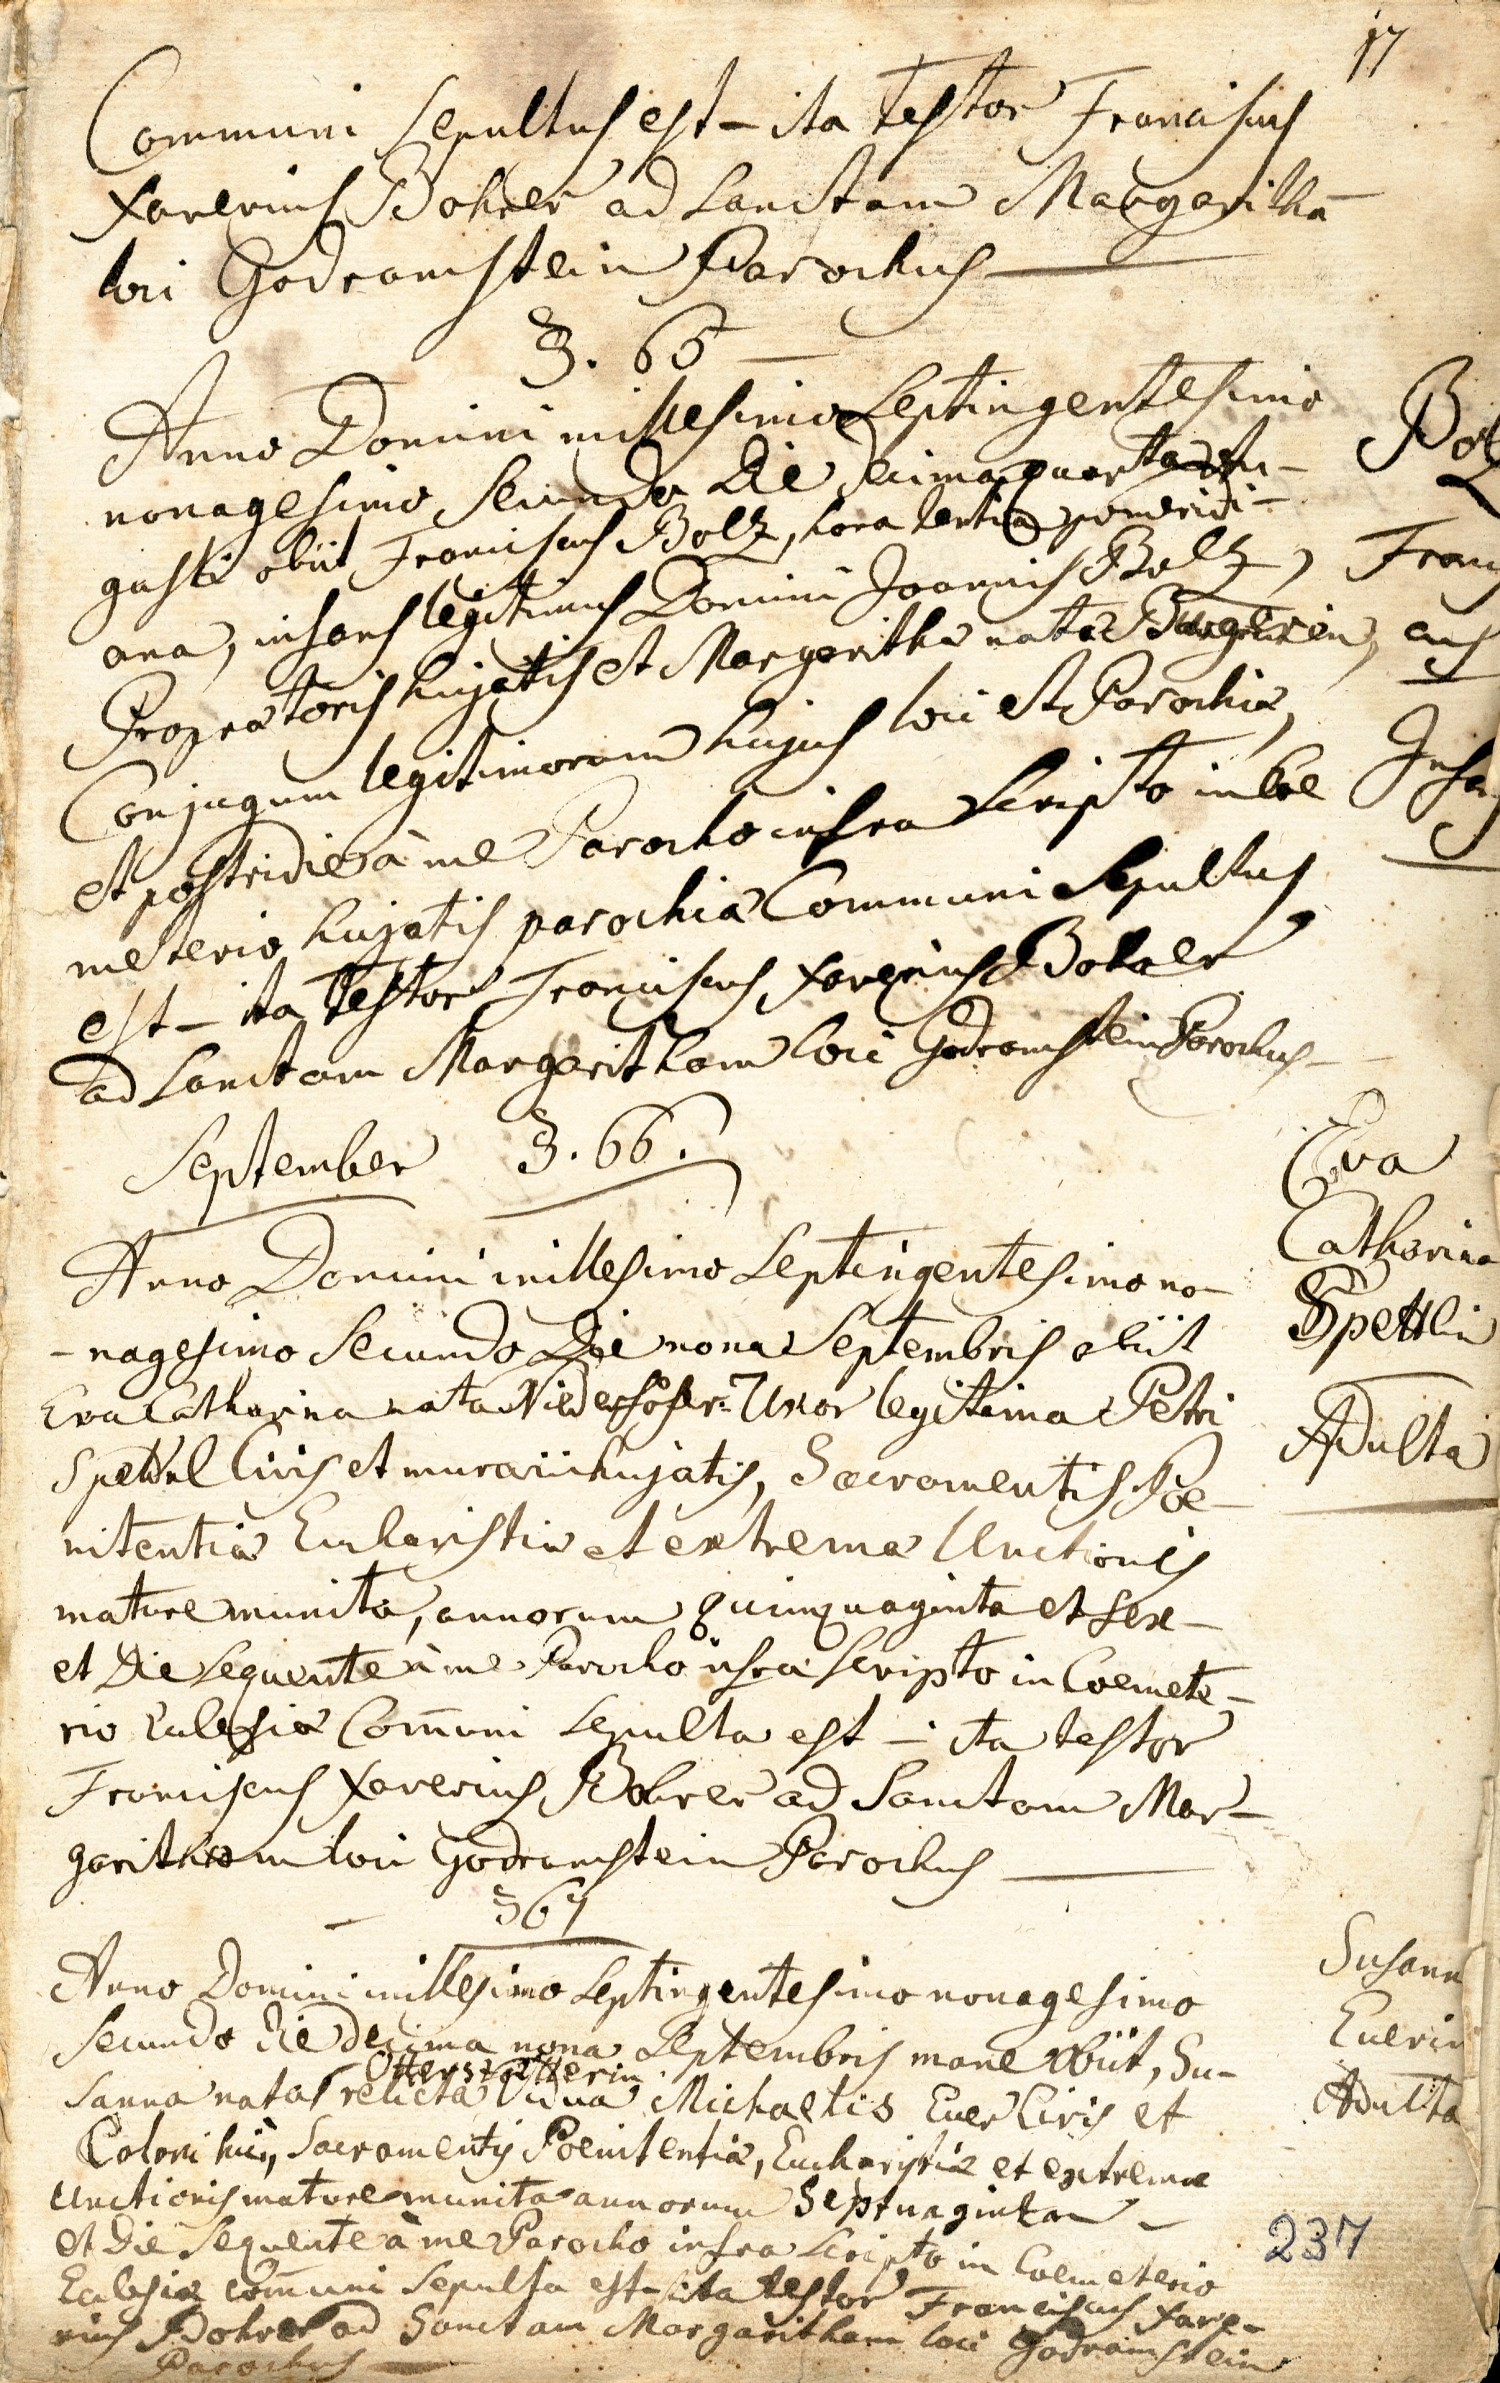 17
Communi sepultus est – ita testor Franciscus
Xaverius Bohrer ad Sanctam Margarithā
loci Godramstein Parochus
§. 65
Anno Domini millesimo Septingentesimo
nonagesimo Secundo Die decima quarta Au-
gusti obiit Franciscus Bolz, hora tertia pomeridi-
ana, infans legitimus Domini Joannis Bolz,
Propraetoris hujatis et Margaritha nata
Conjugum legitimorum hujus loci et Parochiæ,
et postridie à me Parocho infra Scripto in Coe
meterio hujatis parochiæ Communi Sepultus
est – ita testor Franciscus Xaverius Bohrer
ad Sanctam Margaritham loci Godramstein Parochus
Bolz
Franc
Infans
September §. 66.
Anno Domini millesimo Septingentesimo no-
-nagesimo Secundo Die nona Septembris obiit
Eva Catharina nata Uxor legitima Petri
Spettel Civis et murarii hujatis, Sacramentis Poe-
nitentiæ Eucharistiæ et extremæ Unctionis
mature munita, annorum Quinquaginta et Sex –
et Die Sequente à me Parocho infra Scripto in Coemete-
rio Eclesiæ Com̄uni Sepulta est – ita testor
Franciscus Xaverius Bohrer ad Sanctam Mar-
garitham loci Godramstein Parochus
Eva
Catharina
Spettlin
Adulta
§67
Anno Domini millesimo Septingentesimo nonagesimo
Secundo Die decima nona Septembris mane obiit, Su-
Otterstätterin
sanna nata relicta Vidua Michaelis Euer Civis et
Coloni huj, Sacramentis Poenitentiæ, Eucharistiæ et extremæ
Unctionis mature munita annorum Septuaginta –
et Die Sequente à me Parocho infra Scripto in Coemeterio
Eclesiæ com̄uni Sepulta est – ita testor Franciscus Xave-
rius Bohrer ad Sanctam Margaritham loci Godramstein
Parochus
Susann
Euerin
Adulta
237